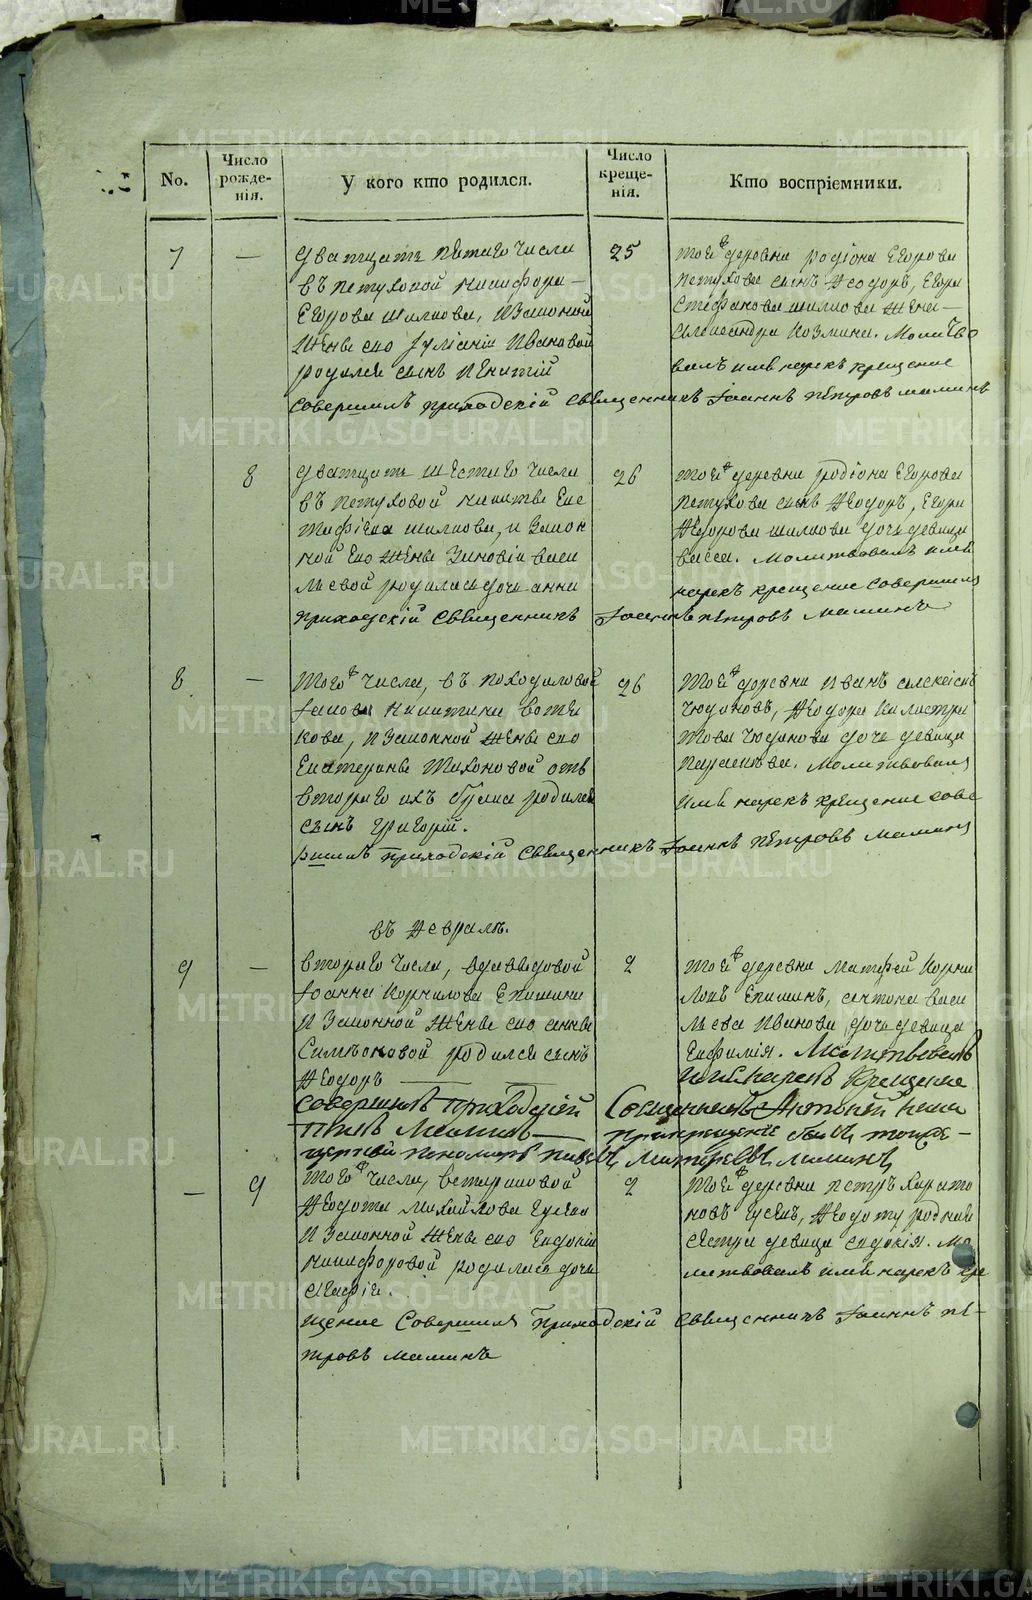 METRIKI.GASO-URAL.RU
No.
Число рожде-нія.
У кого кто родился.
Число креще-нія.
Кто воспріемники.
7 — 25
дватцать пятаго числа
въ Петуховой Никифора
Егорова Шилкова, и законной
жены его Іуліаніи Ивановой
родился сынъ Игнатій
тоей деревни Родіона Егорова
Петухова сынъ Ѳеодоръ, Егора
Стефанова Шилкова жена
Александра Козмина. Молитво
валъ имя нарекъ крещеніе
совершилъ приходскій священникъ Іоаннъ Петровъ Маминъ
8 26
дватцать шестаго числа
въ Петуховой Никиты Евс
тафіева Шилкова, и закон
ной его жены Зиновіи Васи
льевой родилась дочь Анна
тоей деревни Родіона Егорова
Петухова сынъ Ѳеодоръ, Егора
Ѳедорова Шилкова дочь девица
Васса. Молитвовалъ имя
нарекъ крещеніе совершилъ
приходскій священникъ Іоаннъ Петровъ Маминъ
8 — 26
Того числа, въ Походиловой
Іакова Никитина
кова, и законной жены его
Екатерины Тихоновой отъ
втораго ихъ брака родился
сынъ Григорій.
Тоей деревни Иванъ Алексіевъ
Чюдиновъ, Ѳеодора Калистра
това Чюдинова дочь девица
Параскева. Молитвовалъ
имя нарекъ крещеніе сове
ршилъ приходскій священникъ Іоаннъ Петровъ Маминъ
въ Феврале.
9 — 2
втораго числа, въ Давыдовой
Іоанна Корнилова Епишина
и законной жены его Анны
Симеоновой родился сынъ
Ѳеодоръ
тоей деревни Матфей Корни
ловъ Епишинъ, Антона Васи
льева Иванова дочь девица
Евфимія. Молитвовалъ
имя нарекъ Крещеніе
совершилъ приходскій Священникъ Антоній
Маминъ при крещеніе былъ тойже
церкви пономарь Павелъ Маминъ
— 9 2
Того числа,
Ѳеодота Михайлова Гусева
и законной жены его Евдокіи
Никифоровой родилась дочь
Агафія.
Тоей деревни Петръ Харито
новъ Гусевъ, Ѳеодоту родная
сестра девица Евдокія. Мо
литвовалъ имя нарекъ кре
щеніе совершилъ приходскій священникъ Іоаннъ Пе-
тровъ Маминъ